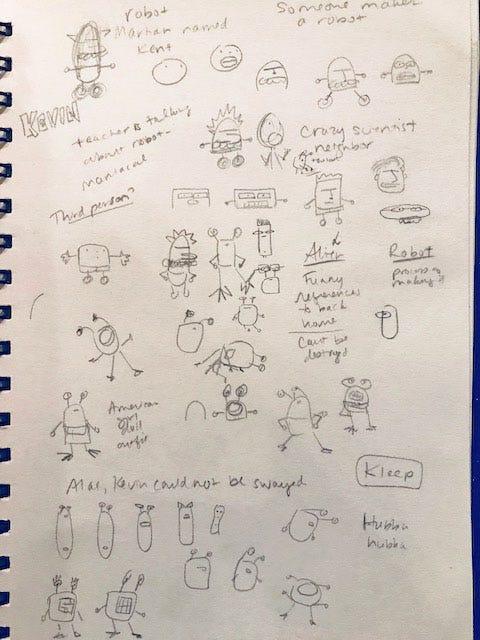 robot
Martian named
Kent
Someone makes
a robot
KEVIN
teacher is talking
about robot-
maniacal
Crazy scientist
neighbor
Third person?
Alien
Funny
references
to back
home
Can't be
destroyed
Robot
process of
making it
American
girl
doll
outfit
Alas, Kevin could not be swayed
Kleep
Hubba
hubba